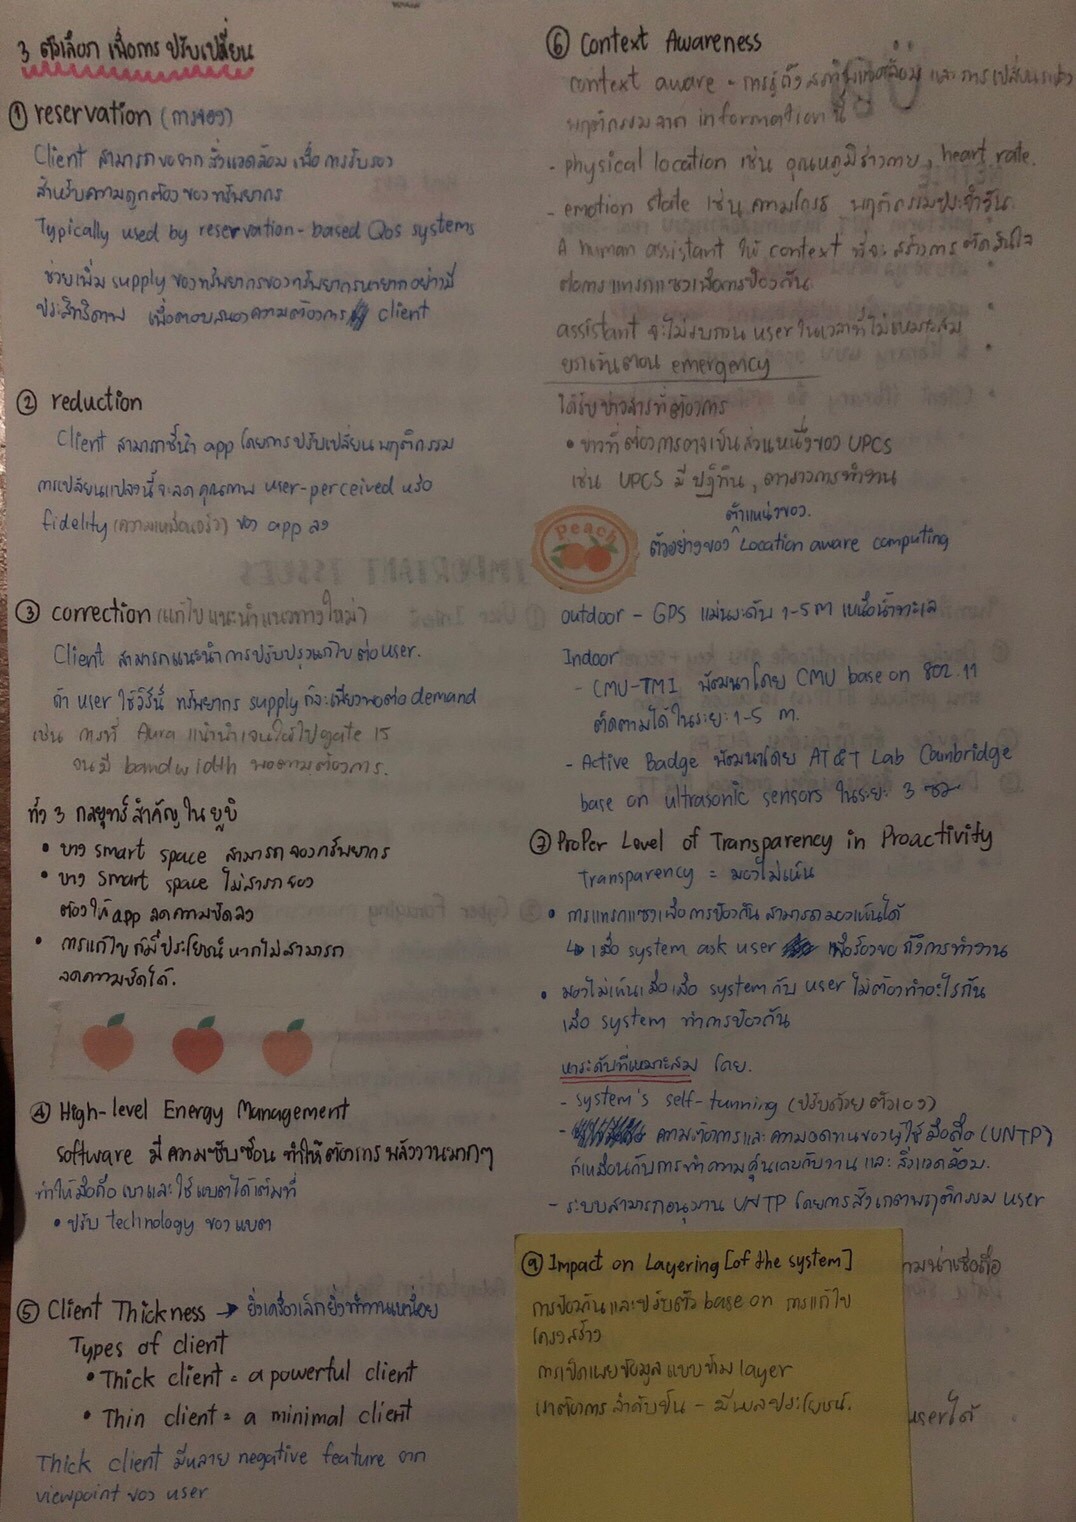 3 ตัวเลือก เพื่อการ ปรับเปลี่ยน
① reservation (การจอง)
Client สามารถขอจาก สิ่งแวดล้อม เพื่อ การรับรอง
สำหรับความถูกต้อง ของ ทรัพยากร
Typically used by reservation-based QoS systems
ช่วยเพิ่ม supply ของทรัพยากรของทรัพยากรหายากอย่างมี
ประสิทธิภาพ เพื่อตอบสนองความต้องการ client
② reduction
Client สามารถชี้นำ app โดยการ ปรับเปลี่ยน พฤติกรรม
การเปลี่ยนแปลงนี้ จะลด คุณภาพ user-perceived หรือ
fidelity (ความเหมือนจริง) ของ app ลง
③ correction (แก้ไข แนะนำแนวทางใหม่)
Client สามารถแนะนำ การปรับปรุงแก้ไข ต่อ user.
ถ้า user ใช้วิธีนี้ ทรัพยากร supply ก็จะเพียงพอต่อ demand
เช่น การที่ Aura แนะนำเจนให้ไป gate 15
จนมี bandwidth พอตามต้องการ.
ทั้ง 3 กลยุทธ์ สำคัญ ใน ยูบิ
• บาง smart space สามารถ จองทรัพยากร
• บาง smart space ไม่สามารถ จอง
ต้องให้ app ลดความชัดลง
• การแก้ไข ก็มีประโยชน์ หากไม่สามารถ
ลดความชัดได้.
④ High-level Energy Management
software มี ความซับซ้อน ทำให้ ต้องการ พลังงานมากๆ
ทำให้มือถือ เบาและ ใช้ แบตได้เต็มที่
• ปรับ technology ของ แบต
⑤ Client Thickness → ยิ่งเครื่องเล็กยิ่งทำงานเหนื่อย
Types of client
• Thick client = a powerful client
• Thin client = a minimal client
Thick client มีหลาย negative feature จาก
viewpoint ของ user
⑥ Context Awareness
context aware - การรู้ถึง และ การเปลี่ยนแปลง
พฤติกรรมจาก information นี้
- physical location เช่น อุณหภูมิร่างกาย, heart rate.
- emotion state เช่น ความโกรธ พฤติกรรมประจำวัน
A human assistant ใช้ context ที่จะ สร้างการ ตัดสินใจ
ต่อการ แทรกแซงเพื่อการป้องกัน
assistant จะไม่รบกวน user ในเวลาที่ไม่เหมาะสม
ยกเว้นตอน emergency
ได้รับ ข่าวสารที่ต้องการ
• ข่าวที่ ต้องการอาจเป็น ส่วนหนึ่งของ UPCS
เช่น UPCS มี ปฏิทิน, ตารางการทำงาน
Peach
ตำแหน่งของ.
ตัวอย่างของ Location aware computing
outdoor - GPS แม่นระดับ 1-5 m เหนือน้ำทะเล
Indoor
- CMU-TMI พัฒนาโดย CMU base on 802.11
ติดตามได้ ในระยะ 1-5 m.
- Active Badge พัฒนาโดย AT&T Lab Cambridge
base on ultrasonic sensors ในระยะ 3 ซม
⑦ Proper Level of Transparency in Proactivity
Transparency = มองไม่เห็น
• การแทรกแซงเพื่อการป้องกัน สามารถมองเห็นได้
↳ เมื่อ system ask user เพื่อร้องขอ ถึงการทำงาน
• มองไม่เห็นเมื่อ เมื่อ system กับ user ไม่ต้องทำอะไรกัน
เมื่อ system ทำการป้องกัน
หาระดับที่เหมาะสม โดย.
- system's self-tunning (ปรับด้วยตัวเอง)
- ความต้องการและ ความอดทนของผู้ใช้ มือถือ (UNTP)
ก็เหมือนกับการทำความคุ้นเคยกับงาน และ สิ่งแวดล้อม.
- ระบบสามารถอนุมาน UNTP โดยการ สังเกตพฤติกรรม user
⑨ Impact on Layering [of the system]
การป้องกัน และปรับตัว base on การแก้ไข
โครงสร้าง
การเปิดเผยข้อมูล แบบข้าม layer
เราต้องการ ลำดับชั้น - มีผลประโยชน์.
ามน่าเชื่อถือ
userได้